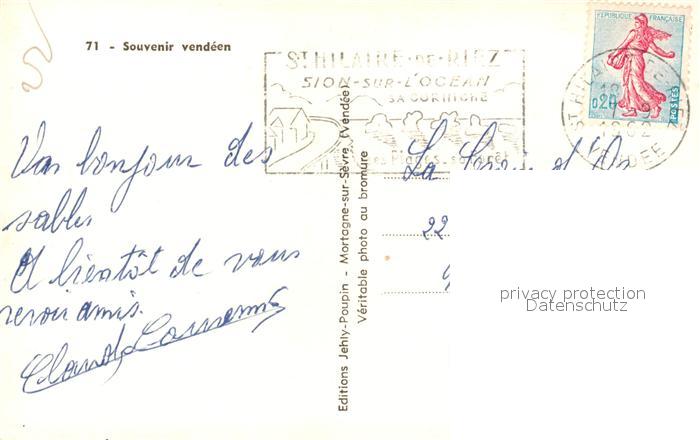 71 - Souvenir vendéen
St HILAIRE-DE-RIEZ
SION-SUR-L'OCEAN
SA CORNICHE
REPUBLIQUE FRANÇAISE
0,20
POSTES
1962
VENDEE
Un bonjour des
sables
A bientôt de vous
revoir amis.
Editions Jehly-Poupin - Mortagne-sur-Sèvre (Vendée)
Véritable photo au bromure
La
22
privacy protection
Datenschutz